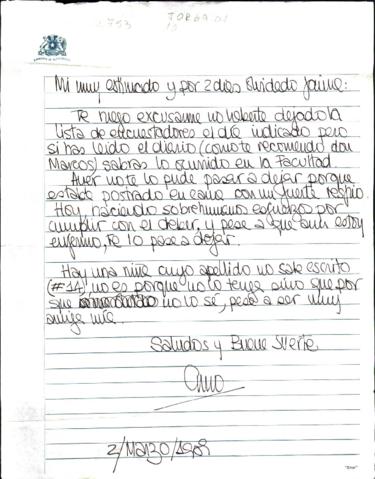 2753 JORGA DI
13
Mi muy estimado y por 2 dias olvidado Jaime:
Te ruego excusarme no haberte dejado la
lista de encuestadores el día indicado pero
si has leido el diario (como te recomendó don
Marcos) sabras lo ocurrido en la Facultad.
Ayer no te lo pude pasar a dejar porque
estaba postrado en cama con un fuerte resfrio
Hoy, haciendo sobrehumano esfuerzo por
cumplir con el deber, y pese a que aun estoy
enfermo, te lo pase a dejar.
Hay una niña cuyo apellido no sale escrito
(#14), no es porque no lo tenga sino que por
que no lo sé, pese a ser muy
amiga mia.
Saludos y Buena Suerte
2/Marzo/1989